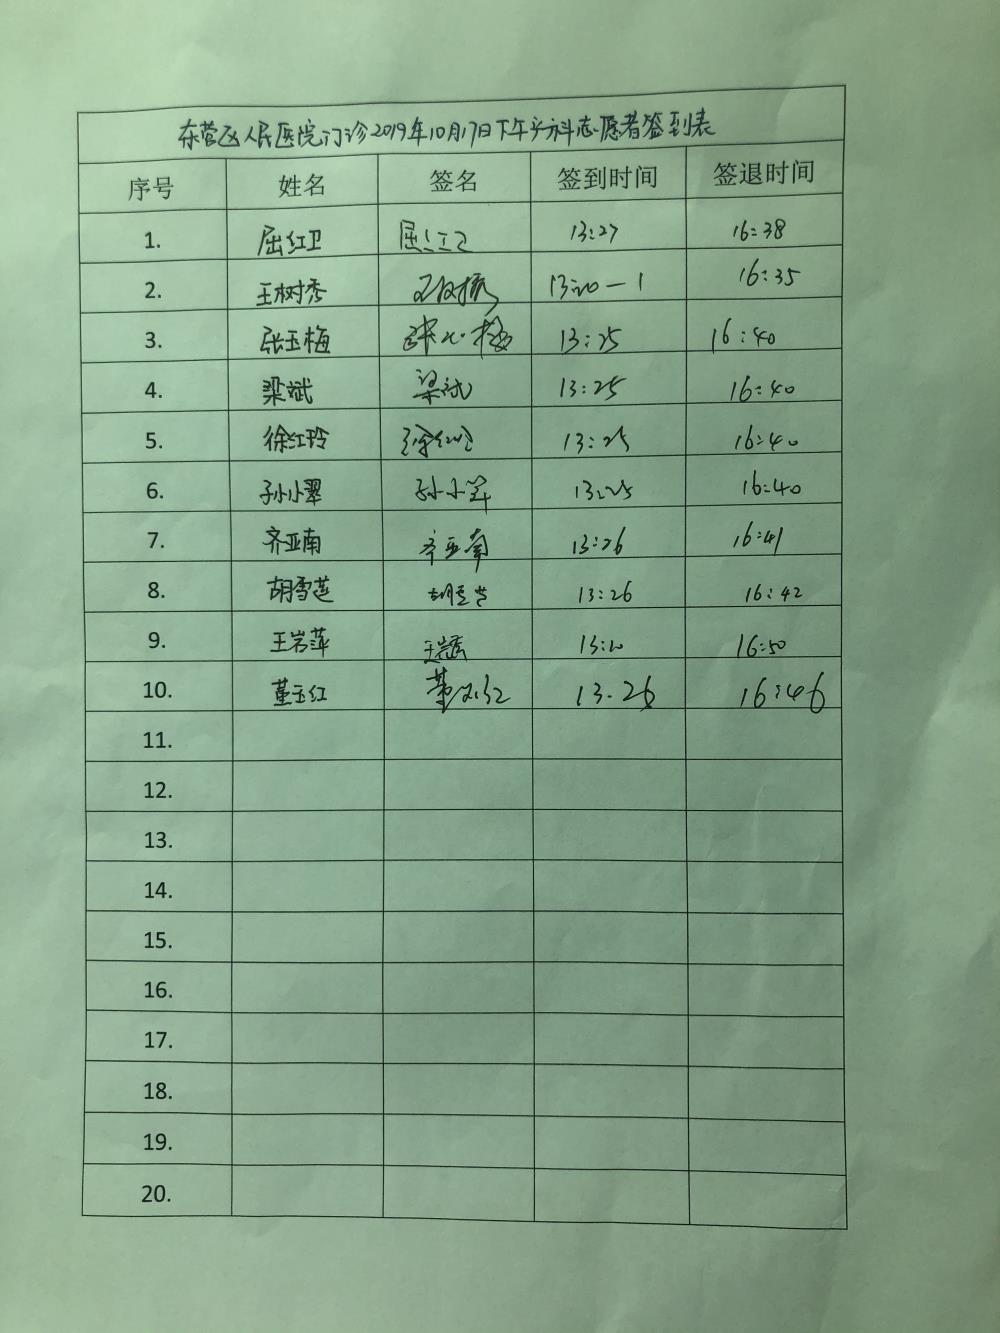 东营区人民医院门诊2019年10月17日下午产科志愿者签到表
序号 姓名 签名 签到时间 签退时间
1. 屈红卫 屈红卫 13:27 16:38
2. 王树秀 13:20-1 16:35
3. 张玉梅 13:25 16:40
4. 梁斌 梁斌 13:25 16:40
5. 徐红玲 徐红玲 13:25 16:40
6. 孙小翠 孙小翠 13:25 16:40
7. 齐亚南 齐亚南 13:26 16:41
8. 胡雪莲 13:26 16:42
9. 王岩萍 16:50
10. 董玉红 董玉红 13.26 16:46
11.
12.
13.
14.
15.
16.
17.
18.
19.
20.